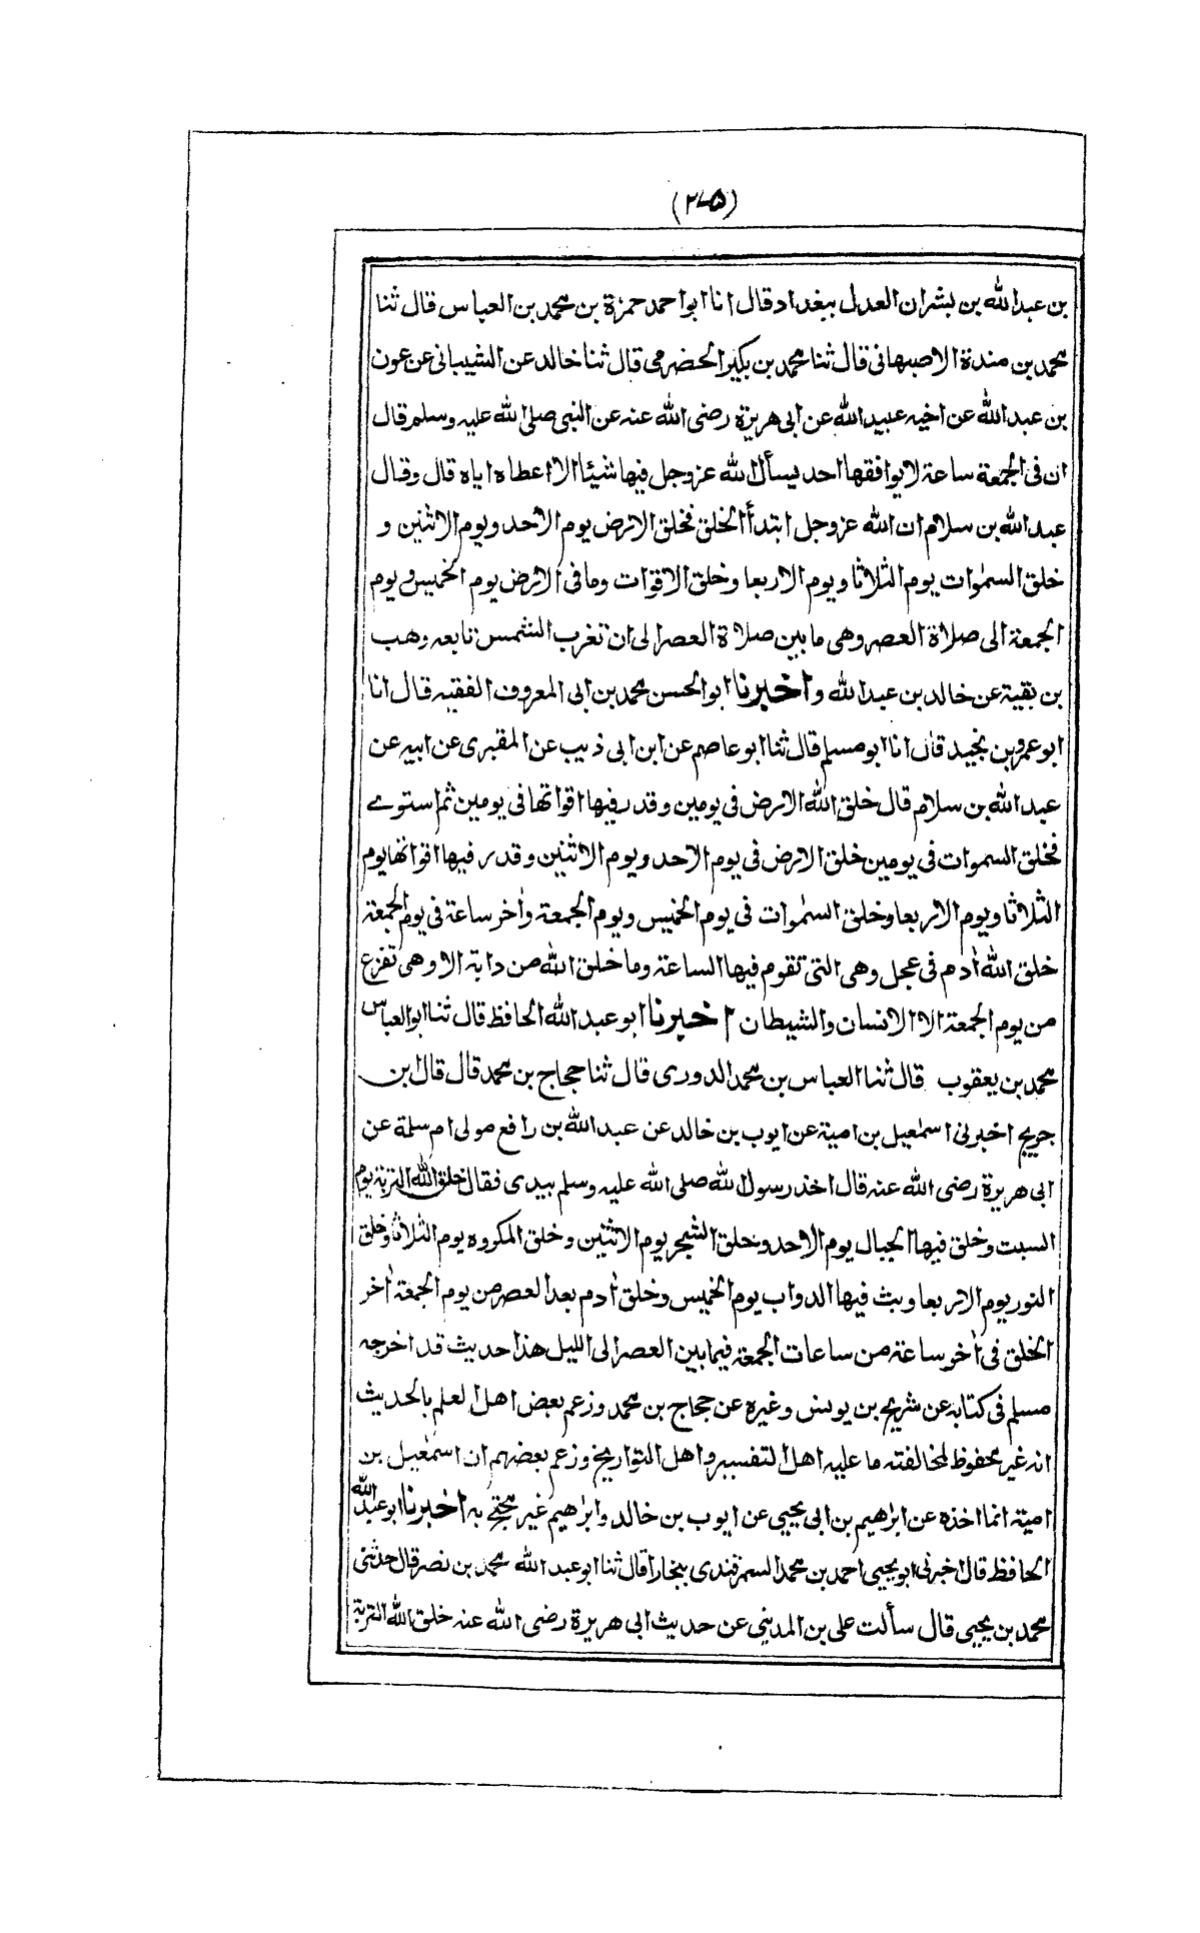 (۲۷۵)
بن عبدالله بن بشران العدل ببغداد قال انا ابو احمد حمزة بن محمد بن العباس قال ثنا
محمد بن مندة الاصبهانى قال ثنا محمد بن بكير الحضرمى قال ثنا خالد عن الشيبانى عن عون
بن عبدالله عن اخيه عبيد الله عن ابى هريرة رضى الله عنه عن النبى صلى الله عليه وسلم قال
ان فى الجمعة ساعة لا يوافقها احد يسأل الله عز وجل فيها شيئا الا اعطاه اياه قال وقال
عبدالله بن سلام ان الله عز وجل ابتدأ الخلق فخلق الارض يوم الاحد ويوم الاثنين و
خلق السمٰوات يوم الثلاثا ويوم الاربعا وخلق الاقوات وما فى الارض يوم الخميس ويوم
الجمعة الى صلاة العصر وهى ما بين صلاة العصر الى ان تغرب الشمس تابعه وهب
بن بقية عن خالد بن عبد الله واخبرنا ابو الحسن محمد بن ابى المعروف الفقيه قال انا
ابو عمرو بن نجيد قال انا ابو مسلم قال ثنا ابو عاصم عن ابن ابى ذيب عن المقبرى عن ابيه عن
عبد الله بن سلام قال خلق الله الارض فى يومين وقدر فيها اقواتها فى يومين ثم استوے
فخلق السموات فى يومين خلق الارض فى يوم الاحد ويوم الاثنين وقدر فيها اقواتها يوم
الثلاثا ويوم الاربعا وخلق السمٰوات فى يوم الخميس ويوم الجمعة واٰخر ساعة فى يوم الجمعة
خلق الله اٰدم فى عجل وهى التى تقوم فيها الساعة وما خلق الله من دابة الا وهى تفزع
من يوم الجمعة الا الانسان والشيطان اخبرنا ابو عبد الله الحافظ قال ثنا ابو العباس
محمد بن يعقوب قال ثنا العباس بن محمد الدورى قال ثنا حجاج بن محمد قال قال ابن
جريج اخبرنى اسمٰعيل بن امية عن ايوب بن خالد عن عبد الله بن رافع مولى ام سلمة عن
ابى هريرة رضى الله عنه قال اخذ رسول الله صلى الله عليه وسلم بيدى فقال خلق الله التربة يوم
السبت وخلق فيها الجبال يوم الاحد وخلق الشجر يوم الاثنين وخلق المكروه يوم الثلاثا وخلق
النور يوم الاربعا وبث فيها الدواب يوم الخميس وخلق اٰدم بعد العصر من يوم الجمعة اٰخر
الخلق فى اٰخر ساعة من ساعات الجمعة فيما بين العصر الى الليل هذا حديث قد اخرجه
مسلم فى كتابه عن شريج بن يونس وغيره عن حجاج بن محمد وزعم بعض اهل العلم بالحديث
انه غير محفوظ لمخالفته ما عليه اهل التفسير واهل التواريخ وزعم بعضهم ان اسمٰعيل بن
امية انما اخذه عن ابرٰهيم بن ابى يحيى عن ايوب بن خالد وابرٰهيم غير محتج به اخبرنا ابو عبد الله
الحافظ قال اخبرنى ابو يحيى احمد بن محمد السمرقندى ببخارا قال ثنا ابو عبد الله محمد بن نصر قال حدثنى
محمد بن يحيى قال سألت على بن المدينى عن حديث ابى هريرة رضى الله عنه خلق الله التربة